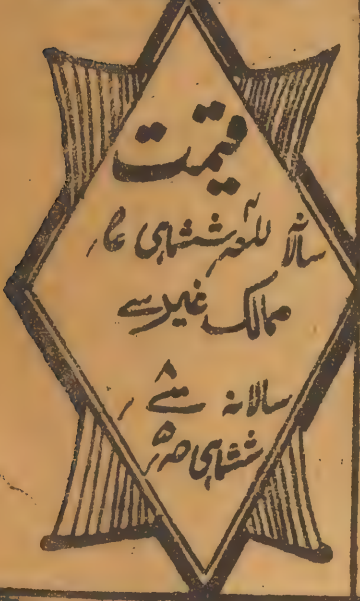 قیمت
سالانہ للعہ ششماہی عہ
ممالک غیر سے
سالانہ
ششماہی